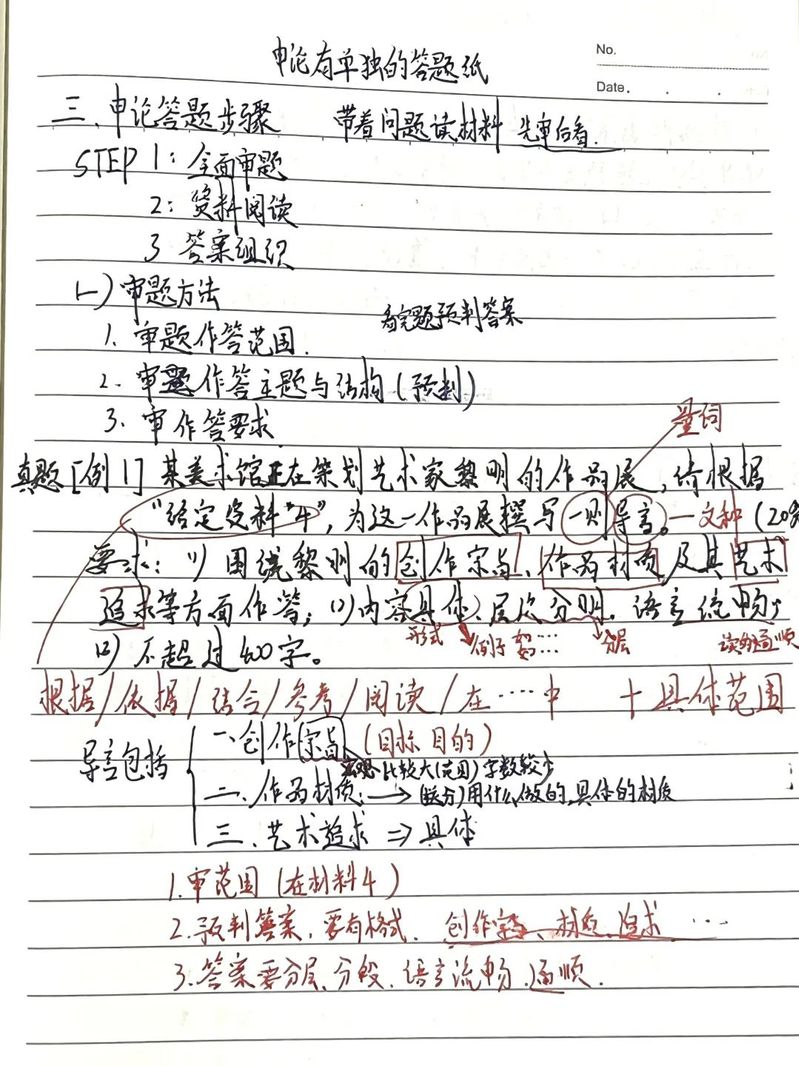 申论有单独的答题纸
No.
Date.
三、申论答题步骤 带着问题读材料 先审后看.
STEP 1: 全面审题
2: 资料阅读
3 答案组织
(一) 审题方法
看完题预判答案
1. 审题作答范围.
2. 审题作答主题与结构 (预判)
3. 审作答要求
量词
真题 [例1] 某美术馆正在策划艺术家黎明的作品展, 请根据
"给定资料4", 为这一作品展撰写一则导言。—文种 (20分
要求: (1) 围绕黎明的创作宗旨、作品材质及其艺术
追求等方面作答; (2) 内容具体、层次分明、语言流畅;
形式 例子 如: … 分层 读的通顺
(3) 不超过400字。
根据/依据/结合/参考/阅读/在……中 + 具体范围
导言包括
一、创作宗旨 (目标 目的)
宏观 比较大(范围) 字数较少
二、作品材质: → 用什么做的, 具体的材质
三、艺术追求 ⇒ 具体
1. 审范围 (在材料4)
2. 预判答案, 要有格式. 创作宗旨、材质、追求 …
3. 答案要分层、分段、语言流畅、通顺.